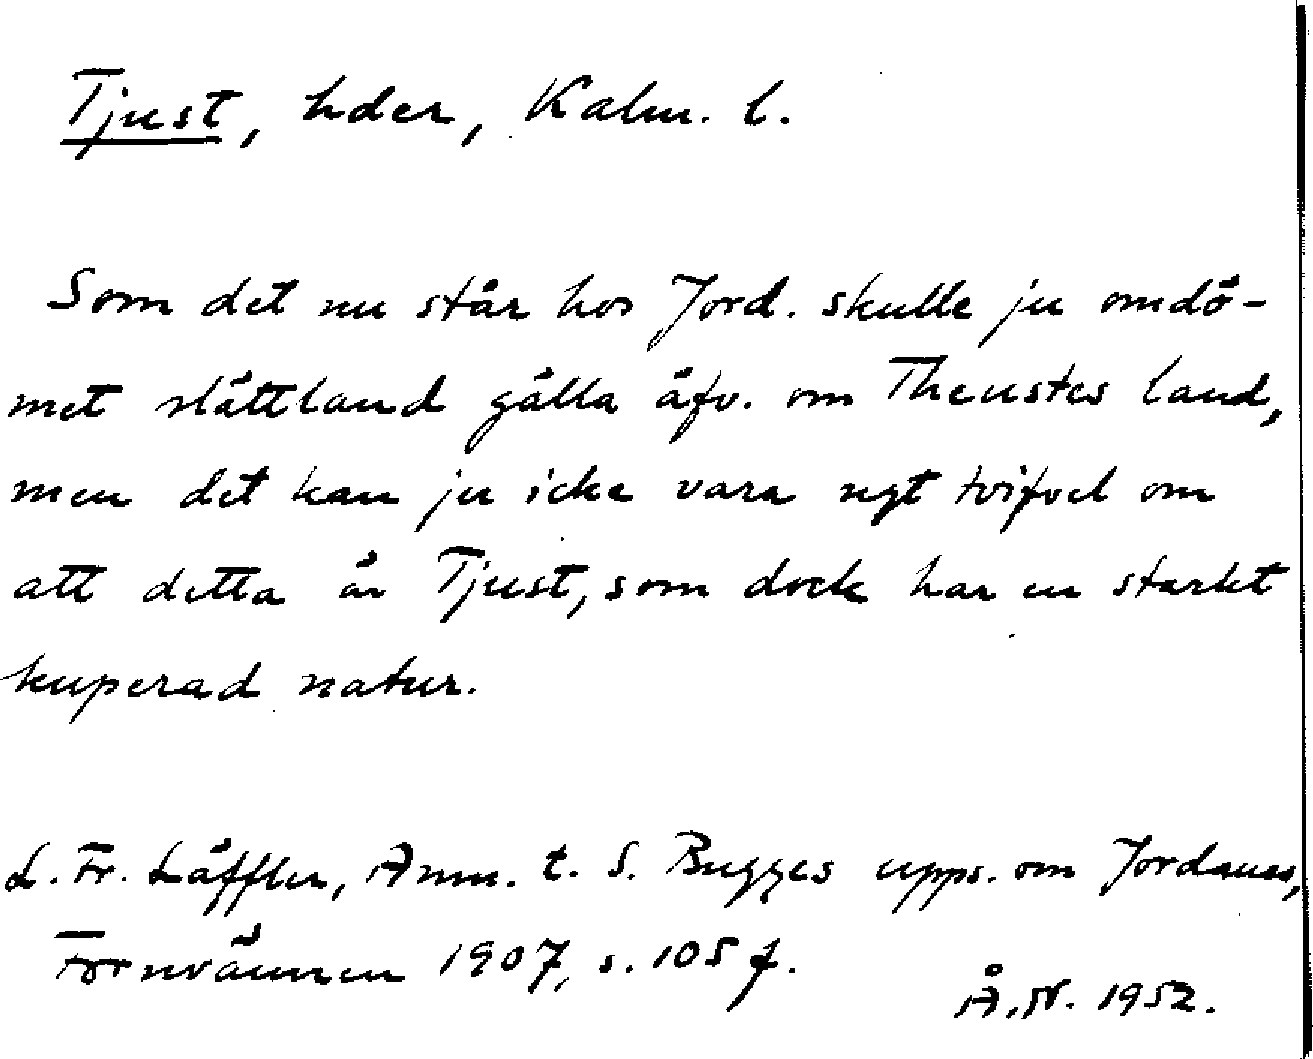 Tjust, hder, Kalm. l.
Som det nu står hos Jord. skulle ju omdö-
met slättland gälla äfv. om Theustes land,
men det kan ju icke vara ngt tvifvel om
att detta är Tjust, som dock har en starkt
kuperad natur.
L. Fr. Läffler, Anm. t. S. Bugges upps. om Jordanes,
Fornvännen 1907, s. 105 f.
Å. N. 1952.